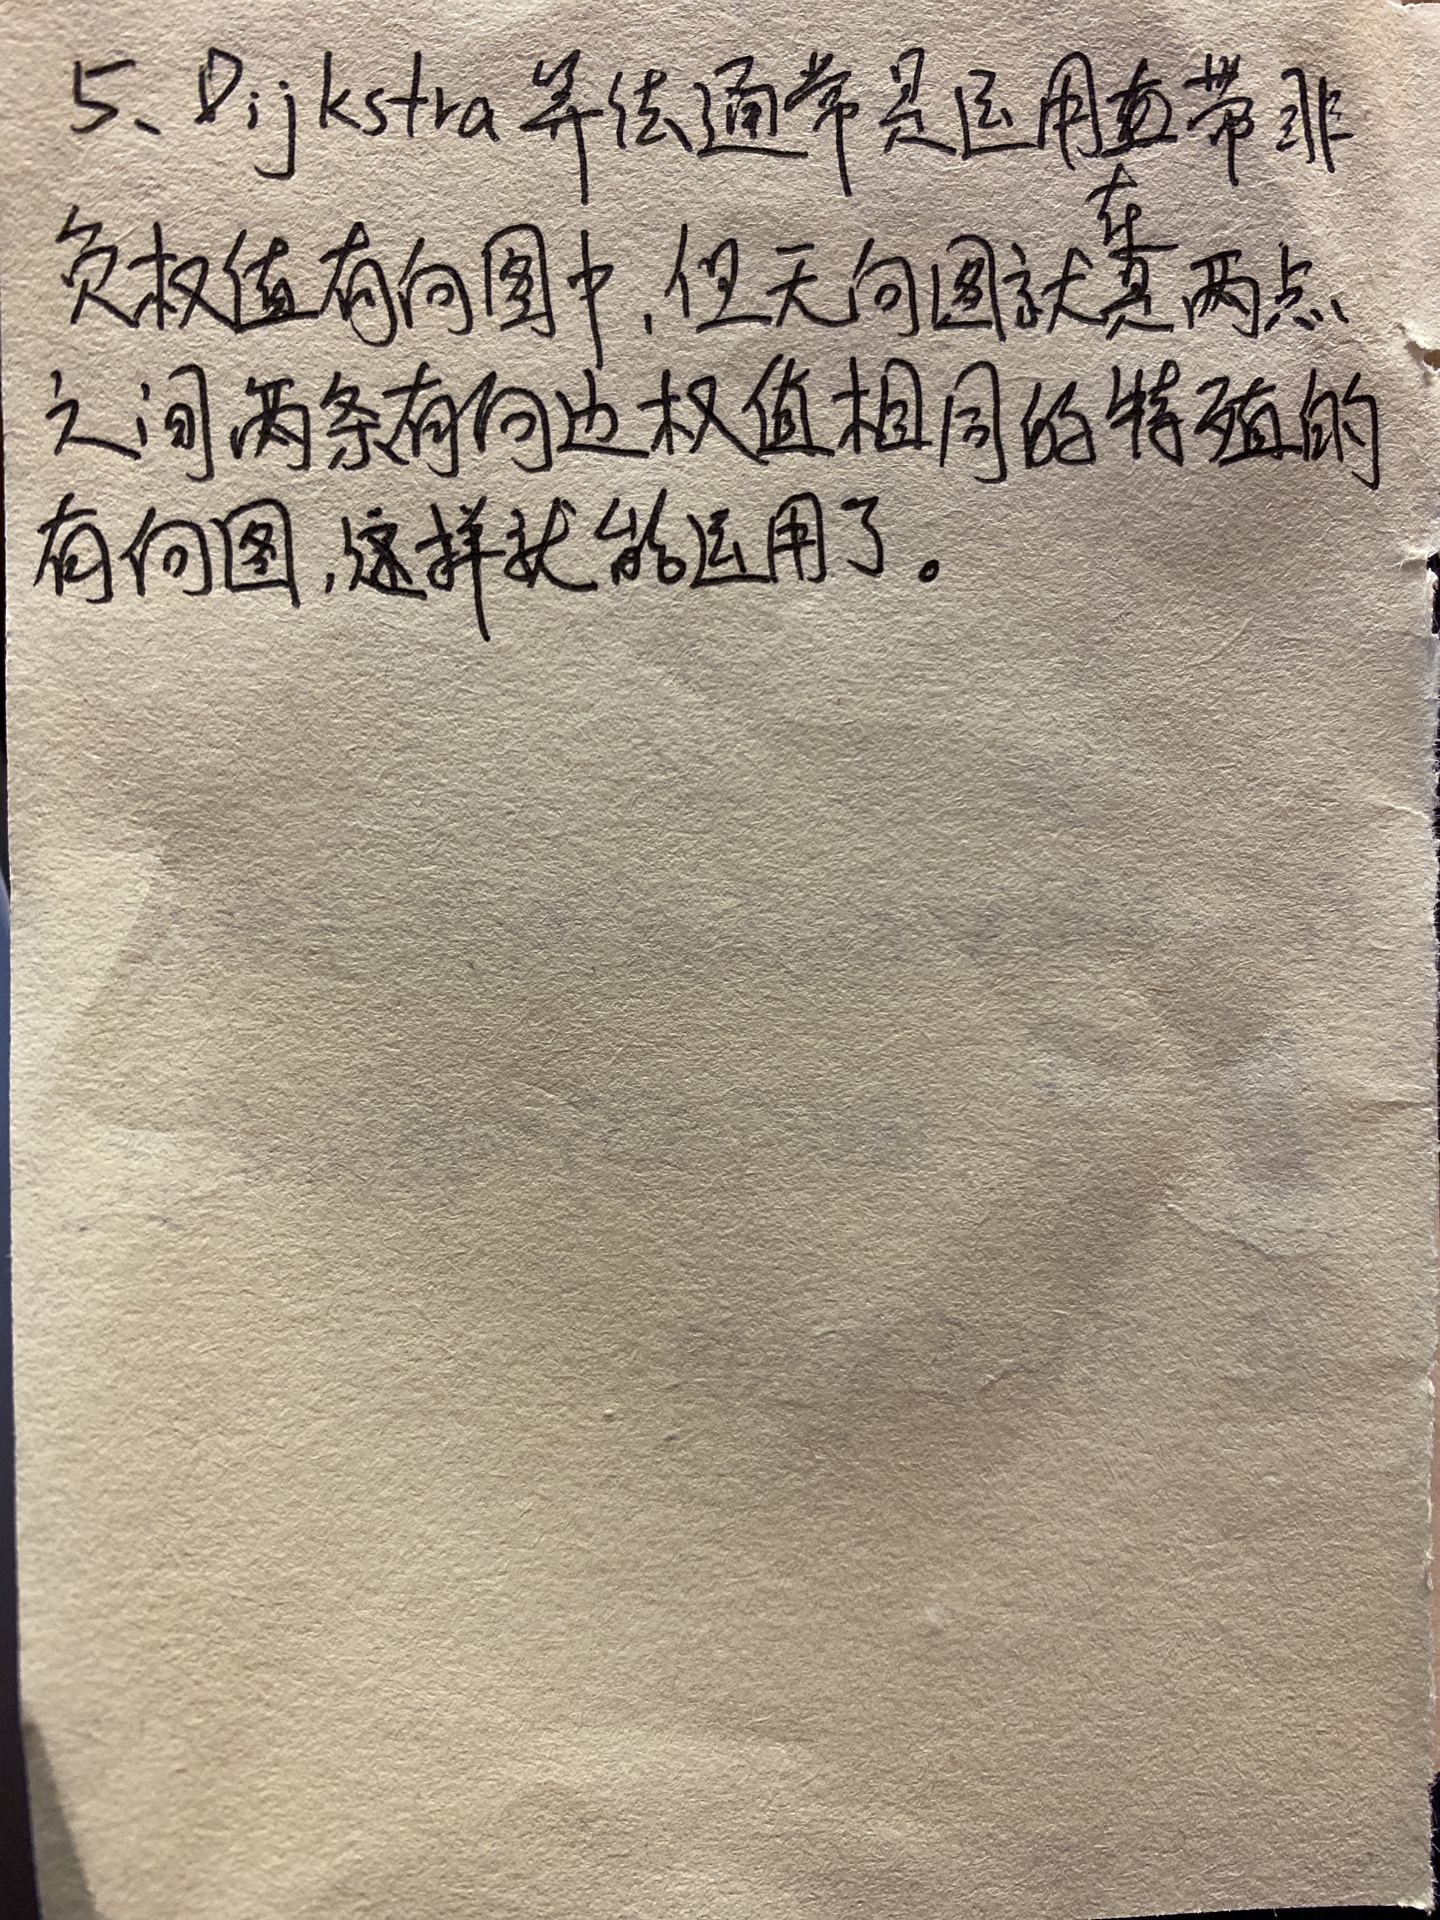 5、Dijkstra算法通常是运用在带非
负权值有向图中,但无向图就是在两点
之间两条有向边权值相同的特殊的
有向图,这样就能运用了。